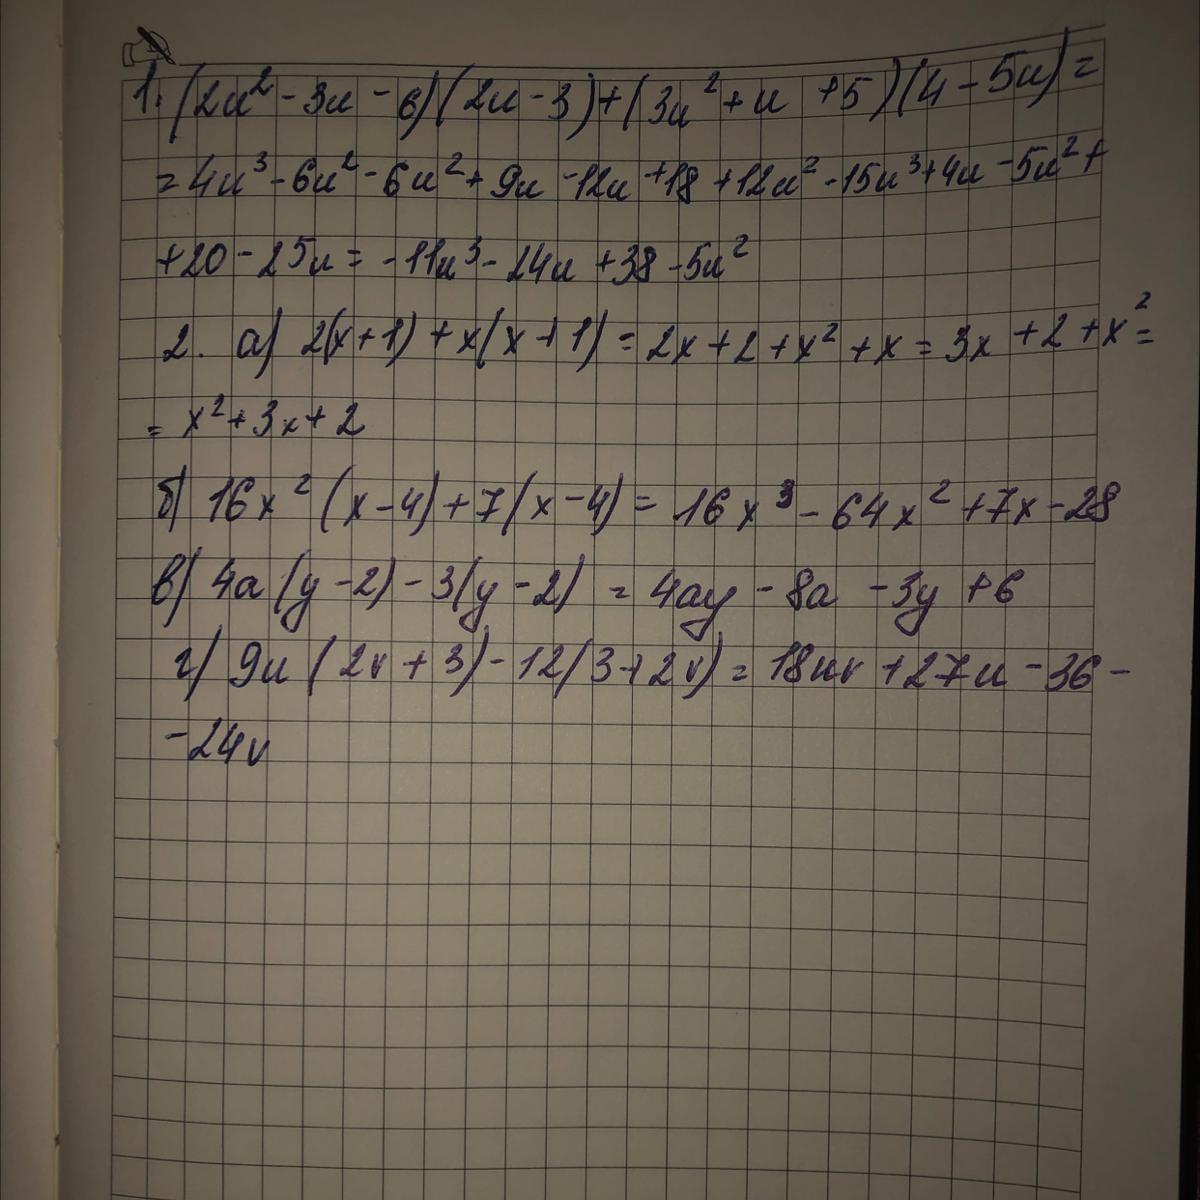 1. (2u² - 3u - 6)(2u - 3) + (3u² + u + 5)(4 - 5u) =
= 4u³ - 6u² - 6u² + 9u - 12u + 18 + 12u² - 15u³ + 4u - 5u² +
+ 20 - 25u = - 11u³ - 24u + 38 - 5u²
2. а) 2(x + 1) + x(x + 1) = 2x + 2 + x² + x = 3x + 2 + x² =
= x² + 3x + 2
б) 16x² (x - 4) + 7(x - 4) = 16x³ - 64x² + 7x - 28
в) 4a (y - 2) - 3(y - 2) = 4ay - 8a - 3y + 6
г) 9u (2v + 3) - 12(3 + 2v) = 18uv + 27u - 36 -
- 24v